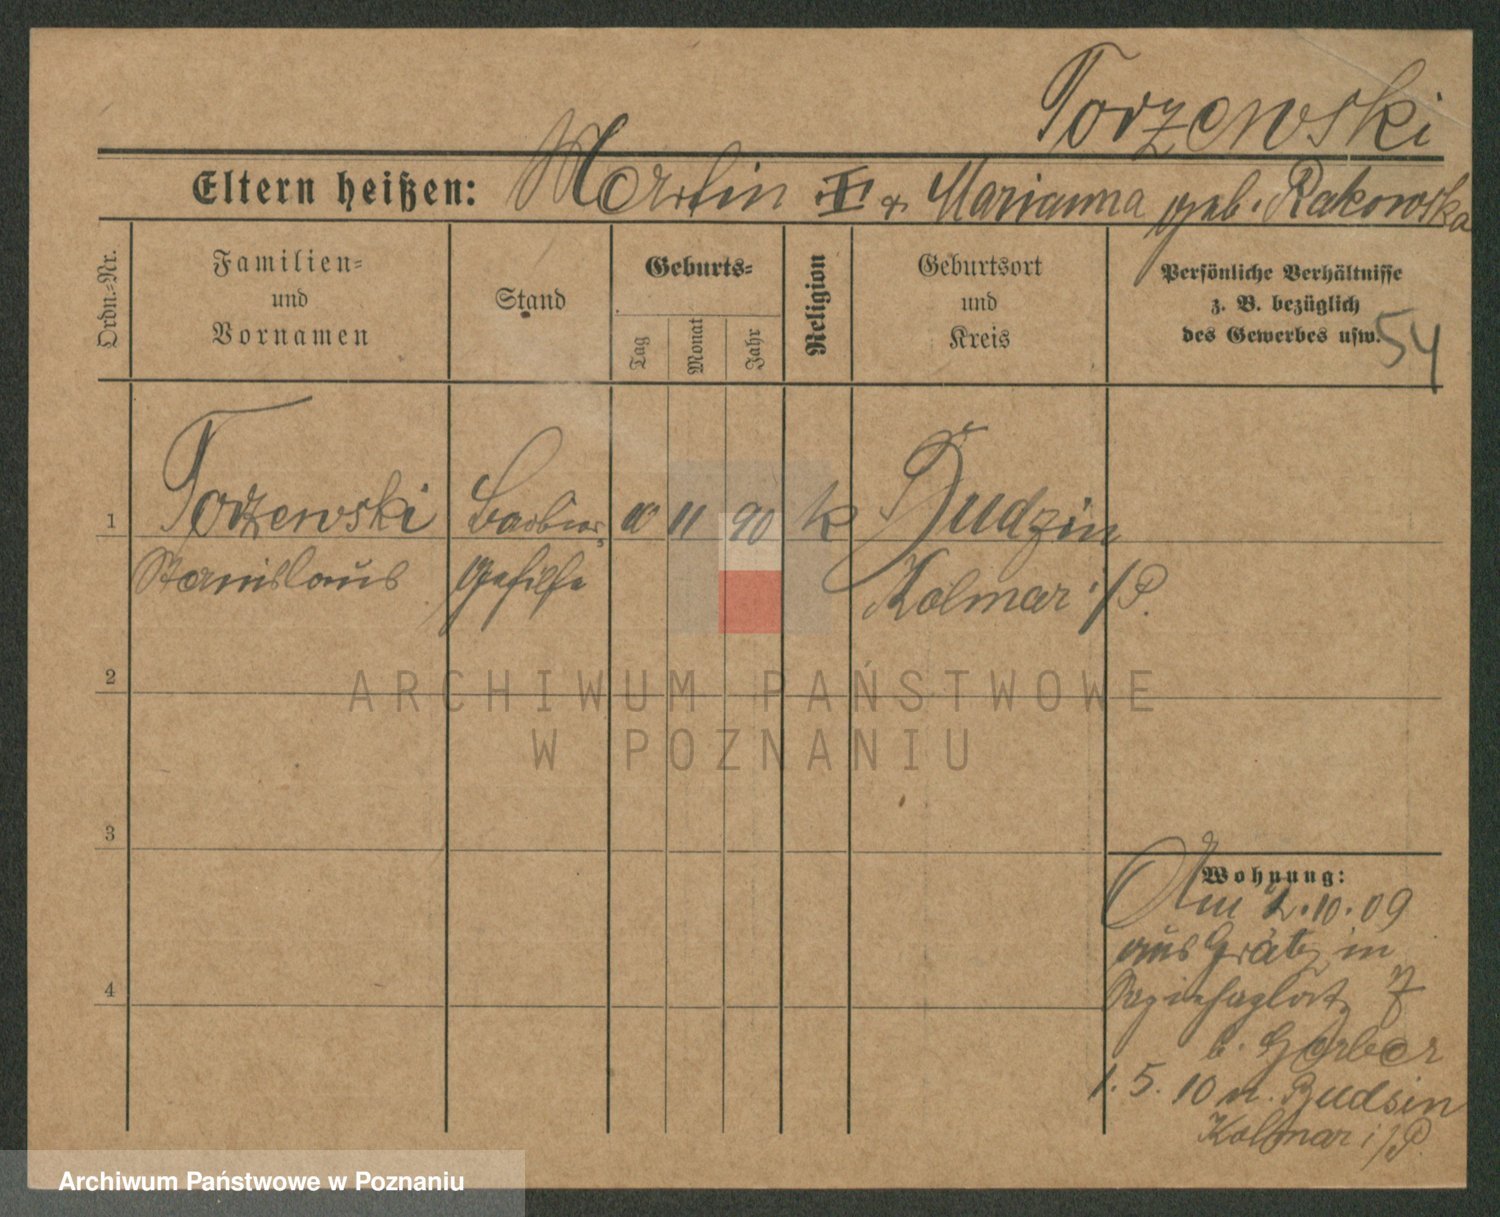 Torzewski
Eltern heißen: Martin II & Marianna geb. Rakowska
Ordn.-Nr.
Familien-
und
Vornamen
Stand
Geburts-
Tag
Monat
Jahr
Religion
Geburtsort
und
Kreis
Persönliche Verhältnisse
z. B. bezüglich
des Gewerbes usw.
54
1
Torzewski
Stanislaus
Barbier
Gehilfe
11 90
k
Budzin
Kolmar i/P.
ARCHIWUM PAŃSTWOWE
W POZNANIU
2
3
4
Wohnung:
Am 2.10.09
aus Grätz in
7
b. Gerber
1.5.10 n. Budsin
Kolmar i/P.
Archiwum Państwowe w Poznaniu